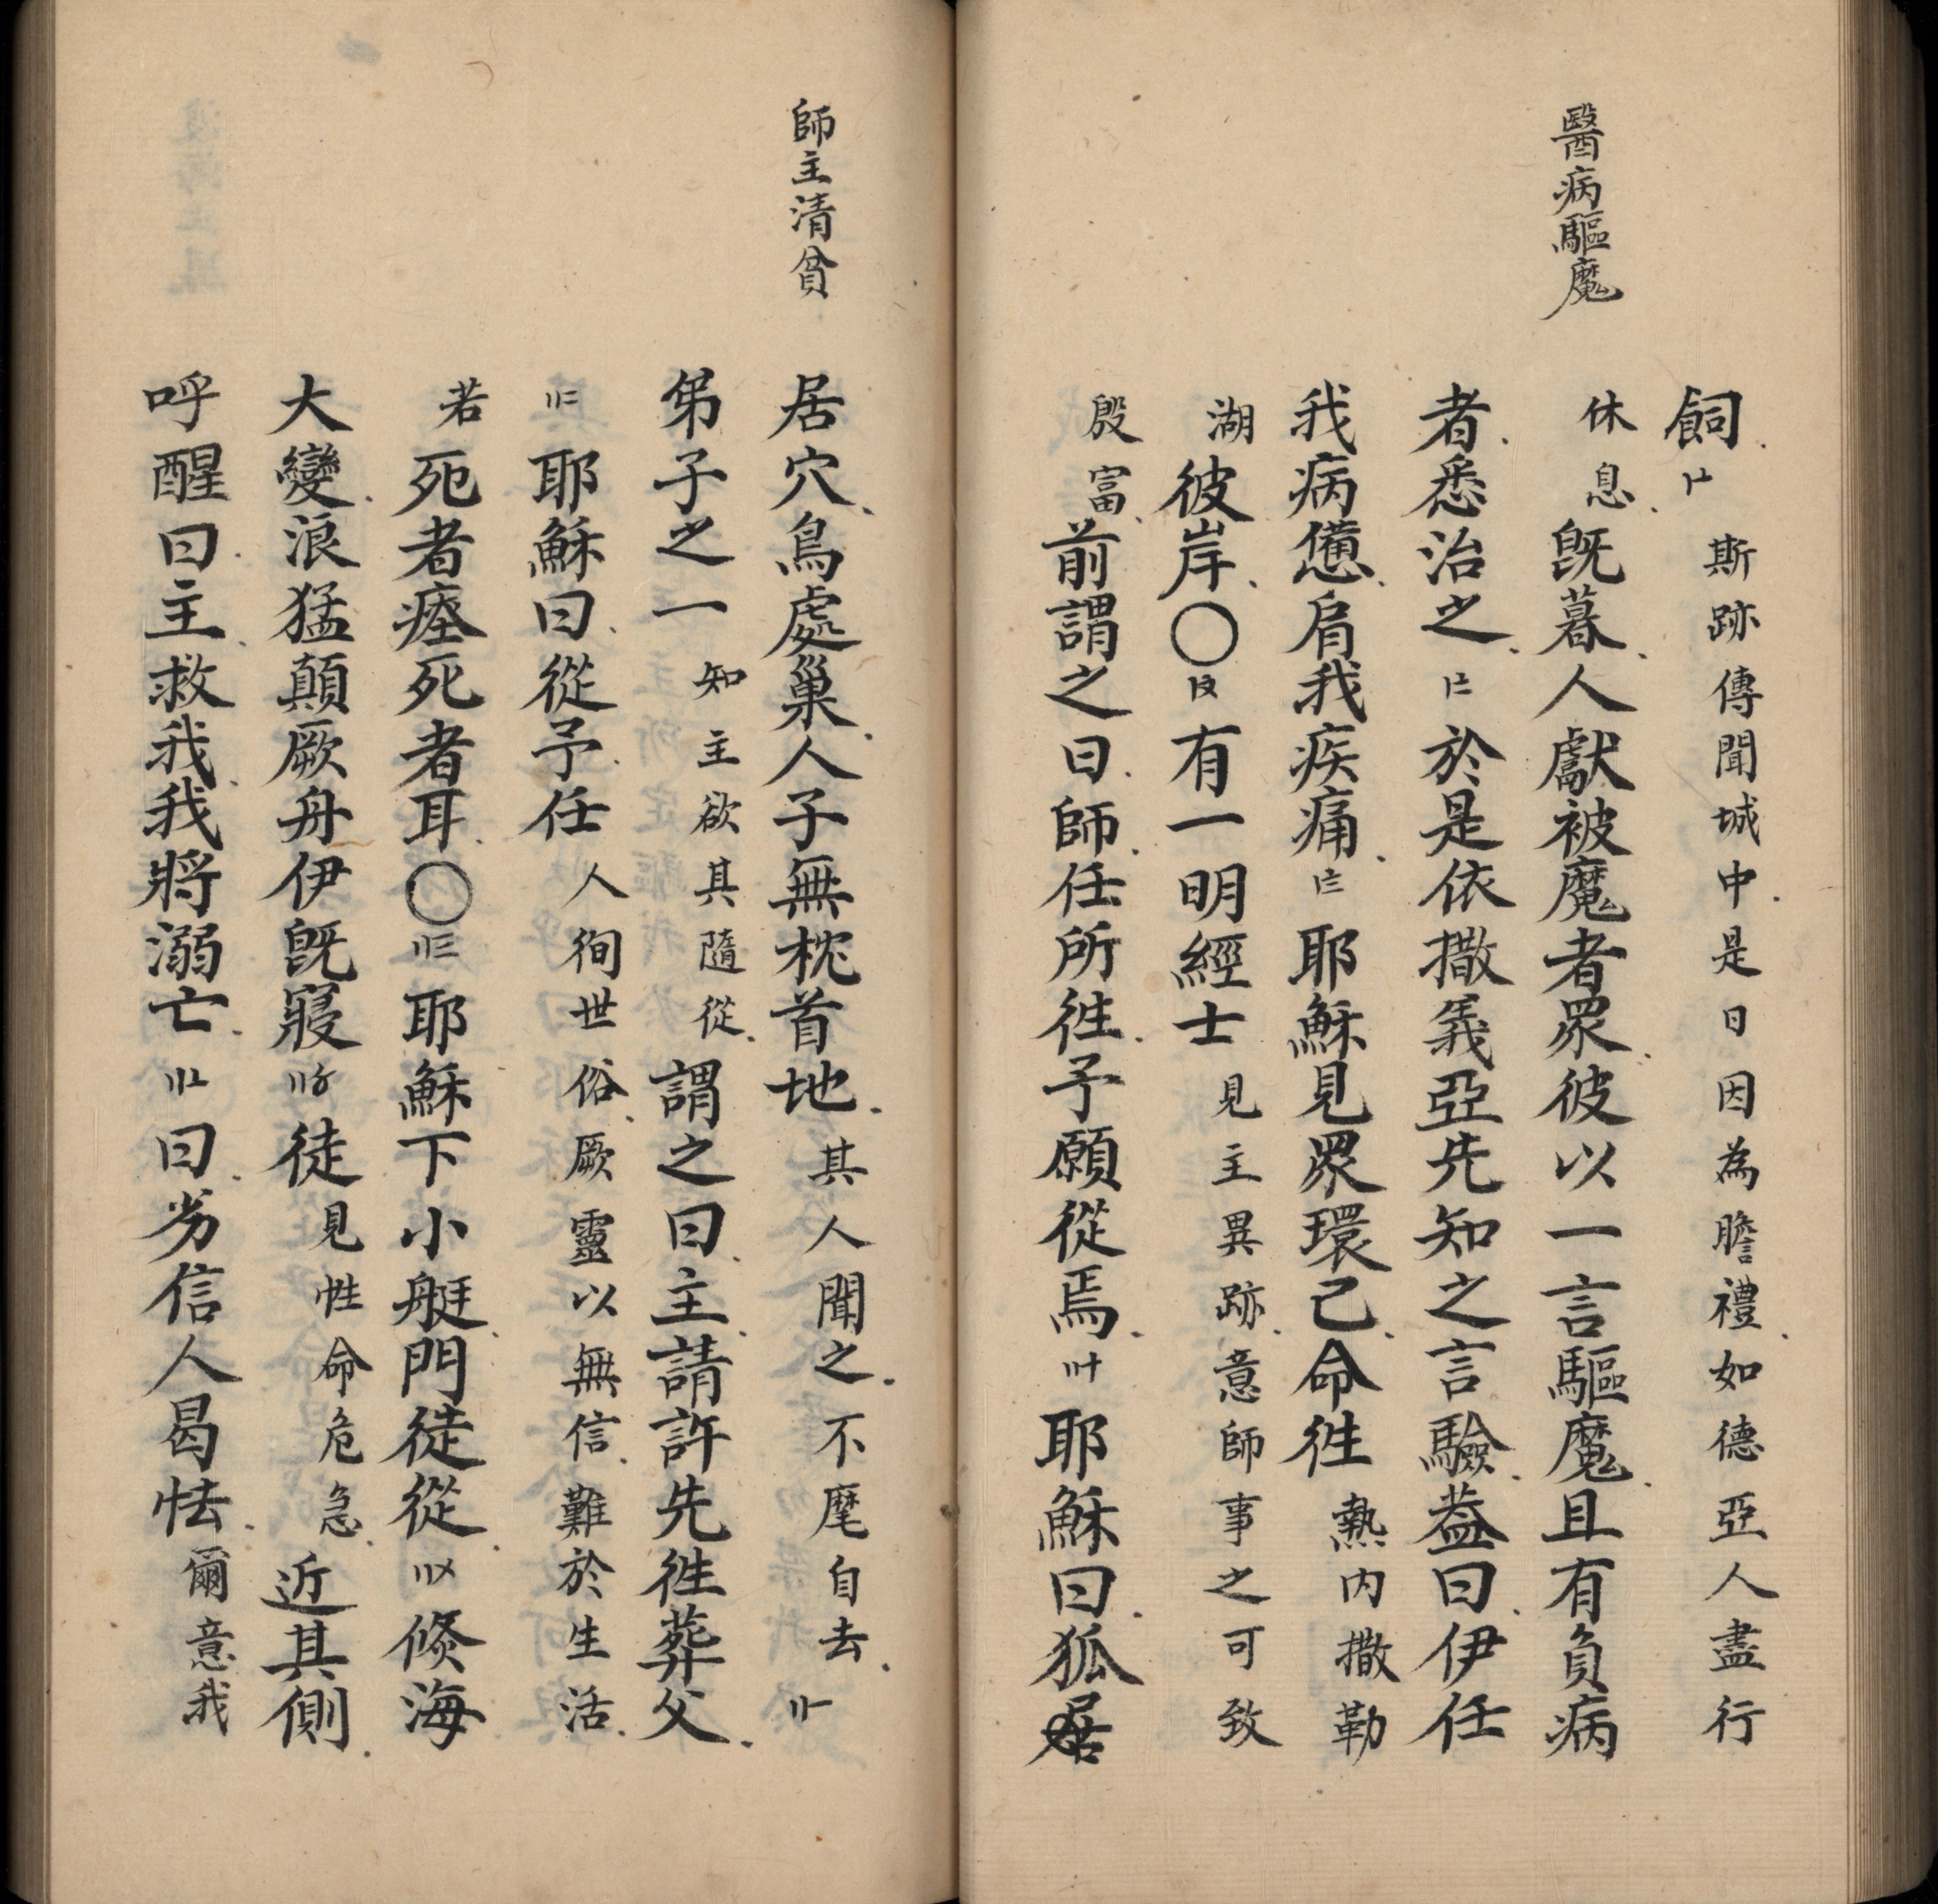 醫病驅魔
飼〡⊥斯跡傳聞城中是日因為瞻禮如德亞人盡行
休息既暮人獻被魔者眾彼以一言驅魔且有負病
者悉治之〡二於是依撒義亞先知之言驗葢曰伊任
我病憊肩我疾痛〡三耶穌見眾環己命徃熱内撒勒
湖彼岸〇有一明經士見主異跡意師事之可致
殷富前謂之曰師任所徃予願從焉〢十耶穌曰狐居
師主清貧
居穴鳥處巢人子無枕首地其人聞之不麾自去〢一
弟子之一知主欲其隨從謂之曰主請許先徃葬父
〢二耶穌曰從予任人徇世俗厥靈以無信難於生活
若死者瘞死者耳〇〢三耶穌下小艇門徒從〢〤倏海
大變浪猛顛厥舟伊既寢〢〥徒見性命危急近其側
呼醒曰主救我我將溺亡〢〦曰劣信人曷怯爾意我